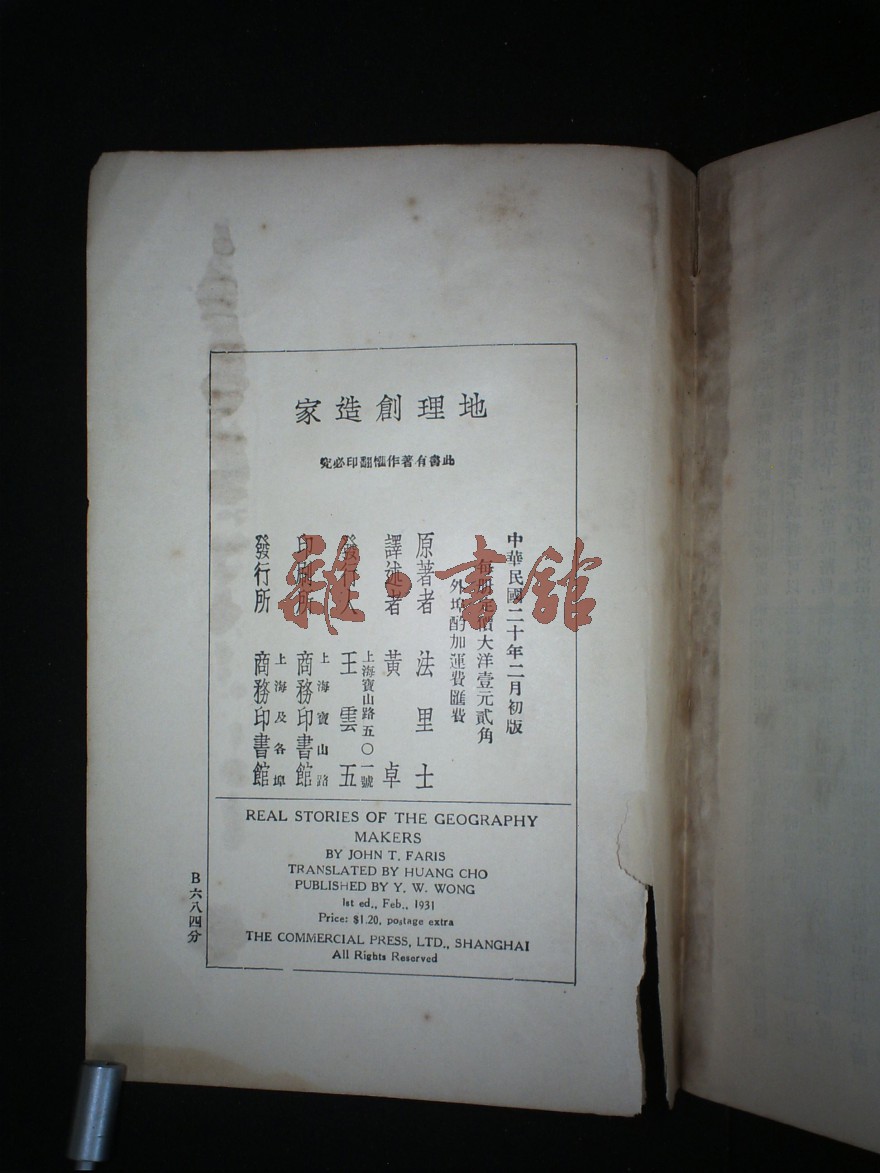 地理創造家
此書有著作權翻印必究
中華民國二十年二月初版
每冊定價大洋壹元貳角
外埠酌加運費匯費
原著者 法里士
譯述者 黃卓
上海寶山路五〇一號
發行人 王雲五
上海寶山路
印刷所 商務印書館
上海及各埠
發行所 商務印書館
REAL STORIES OF THE GEOGRAPHY
MAKERS
BY JOHN T. FARIS
TRANSLATED BY HUANG CHO
PUBLISHED BY Y. W. WONG
1st ed., Feb., 1931
Price: $1.20, postage extra
THE COMMERCIAL PRESS, LTD., SHANGHAI
All Rights Reserved
B六八四分
雜·書館